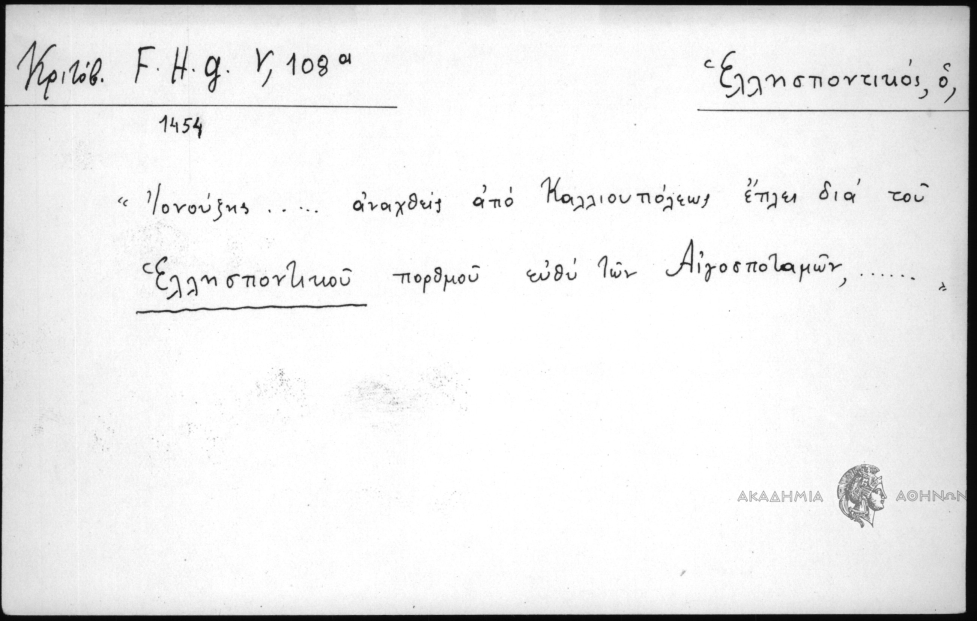 Κριτόβ. F. H. g. V, 108α
Ἑλλησποντικός, ὁ,
1454
“ Ἰονούζης ..... ἀναχθείς ἀπό Καλλιουπόλεως ἔπλει διά τοῦ
Ἑλλησποντικοῦ πορθμοῦ εὐθύ τῶν Αἰγοσποταμῶν, ...... „
ΑΚΑΔΗΜΙΑ ΑΘΗΝΩΝ